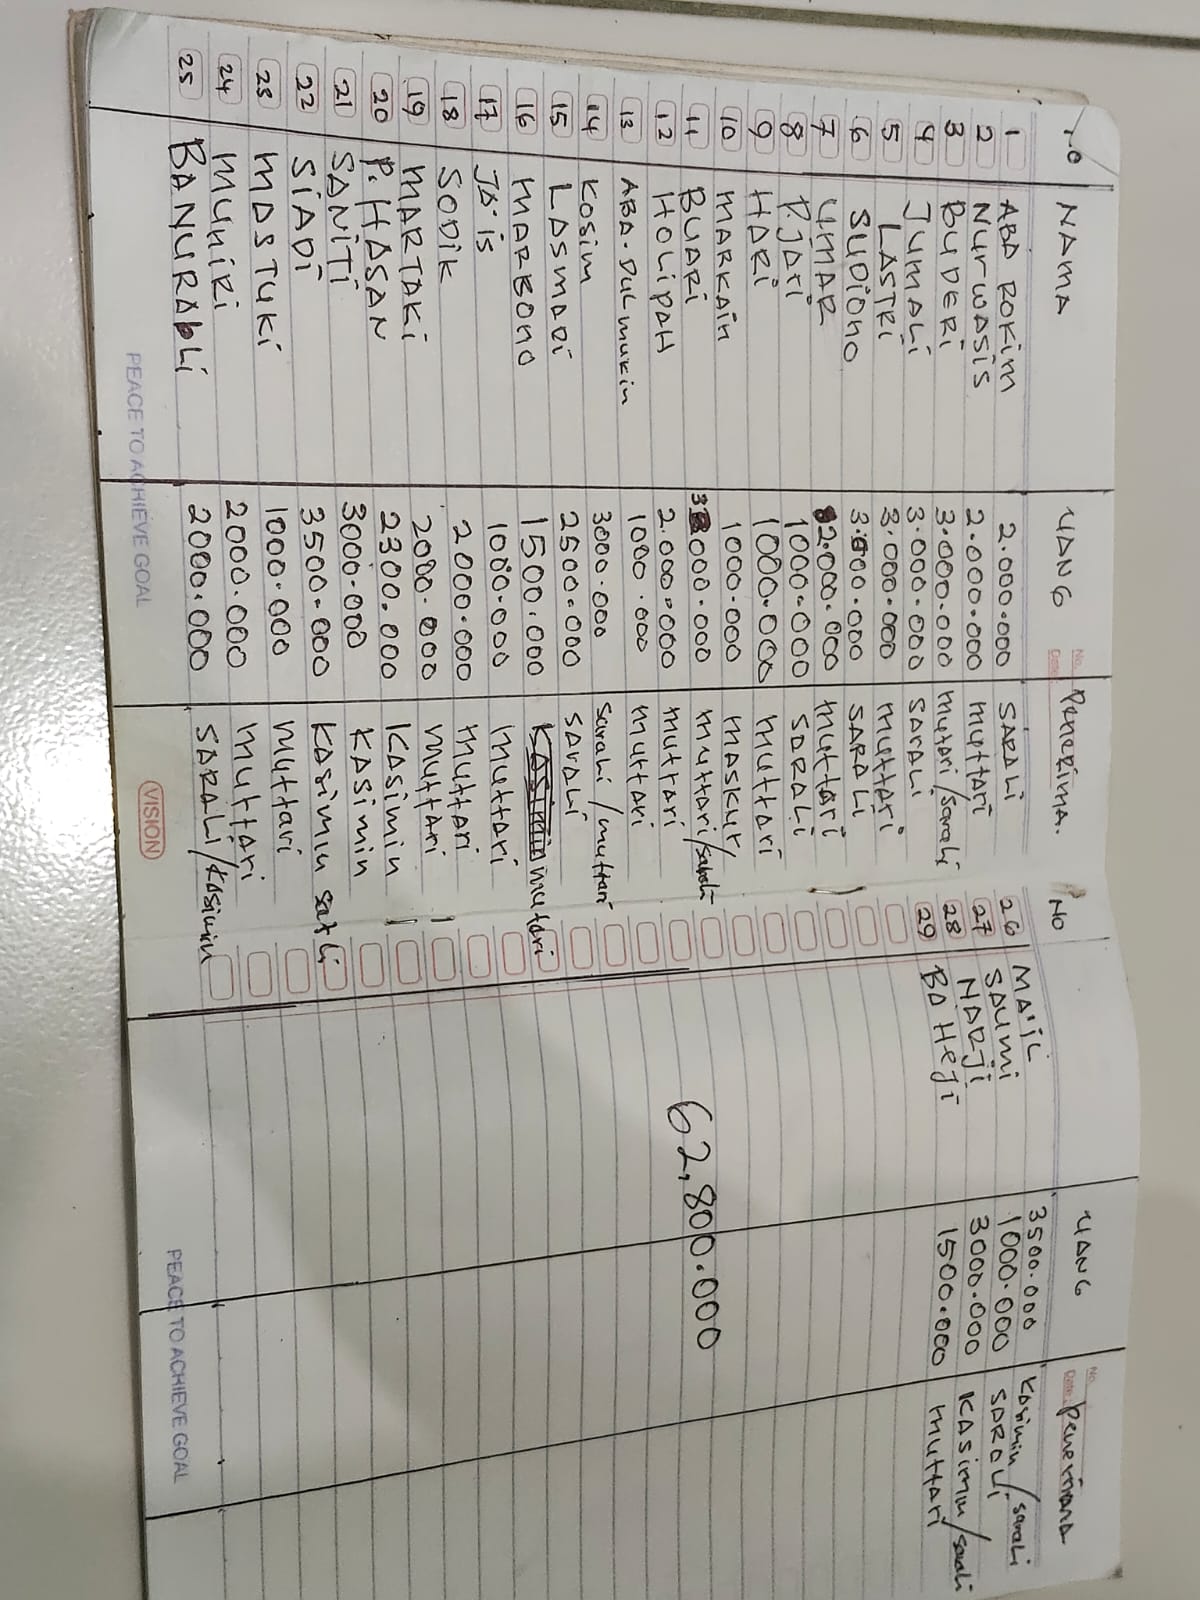 No NAMA UANG Penerima.
1 ABA ROKIM 2.000.000 SARALI
2 NURWASIS 2.000.000 MUTTARI
3 BUDERI 3.000.000 Mutari/Sarali
4 JUMALI 3.000.000 SARALI
5 LASTRI 3.000.000 MUTTARI
6 SUDIONO 3.000.000 SARALI
7 UMAR 2.000.000 MUTTARI
8 P.JARI 1000.000 SARALI
9 HARI 1000.000 MUTTARI
10 MARKAIN 1000.000 MASKUR/
11 BUARI 3000.000 MUTTARI/Sarali
12 HOLIPAH 2.000.000 MUTTARI
13 ABA.DULMUKIN 1000.000 MUTTARI
14 KOSIM 3000.000 Sarali/Muttari
15 LASMARI 2500.000 SARALI
16 MARBONO 1500.000 Muttari
17 JA'IS 1000.000 MUTTARI
18 SODIK 2.000.000 MUTTARI
19 MARTAKI 2000.000 MUTTARI
20 P. HASAN 2300.000 KASIMIN
21 SANITI 3000.000 KASIMIN
22 SIADI 3500.000 KASIMIN Sarali
23 MASTUKI 1000.000 MUTTARI
24 MUNIRI 2000.000 MUTTARI
25 BANURALI 2000.000 SARALI/Kasimin
PEACE TO ACHIEVE GOAL
VISION
No UANG Penerima
26 MA'IL 3500.000 Kasimin/Sarali
27 SAUMI 1000.000 SARALI
28 NARJI 3000.000 KASIMIN/Sarali
29 BA HEJI 1500.000 MUTTARI
62,800.000
PEACE TO ACHIEVE GOAL